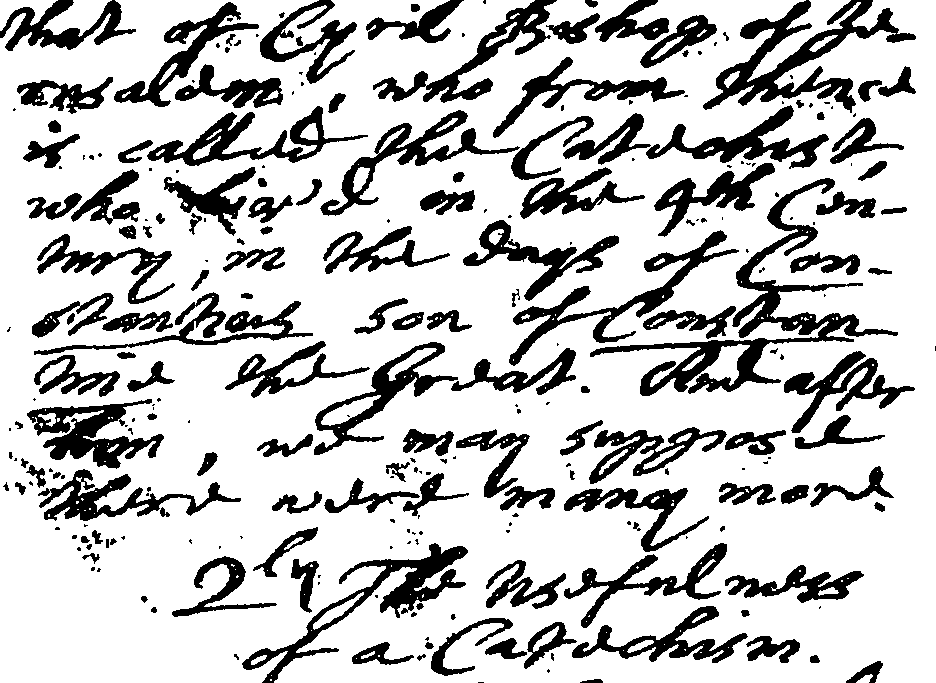 that of Cyril Bishop of Je-
rusalem, who from thence
is called the Catechist,
who liv'd in the 4th Cen-
tury, in the days of Con-
stantius son of Constan
tine the Great. And after
him, we may suppose
there were many more.
2ly The usefulness
of a Catechism.